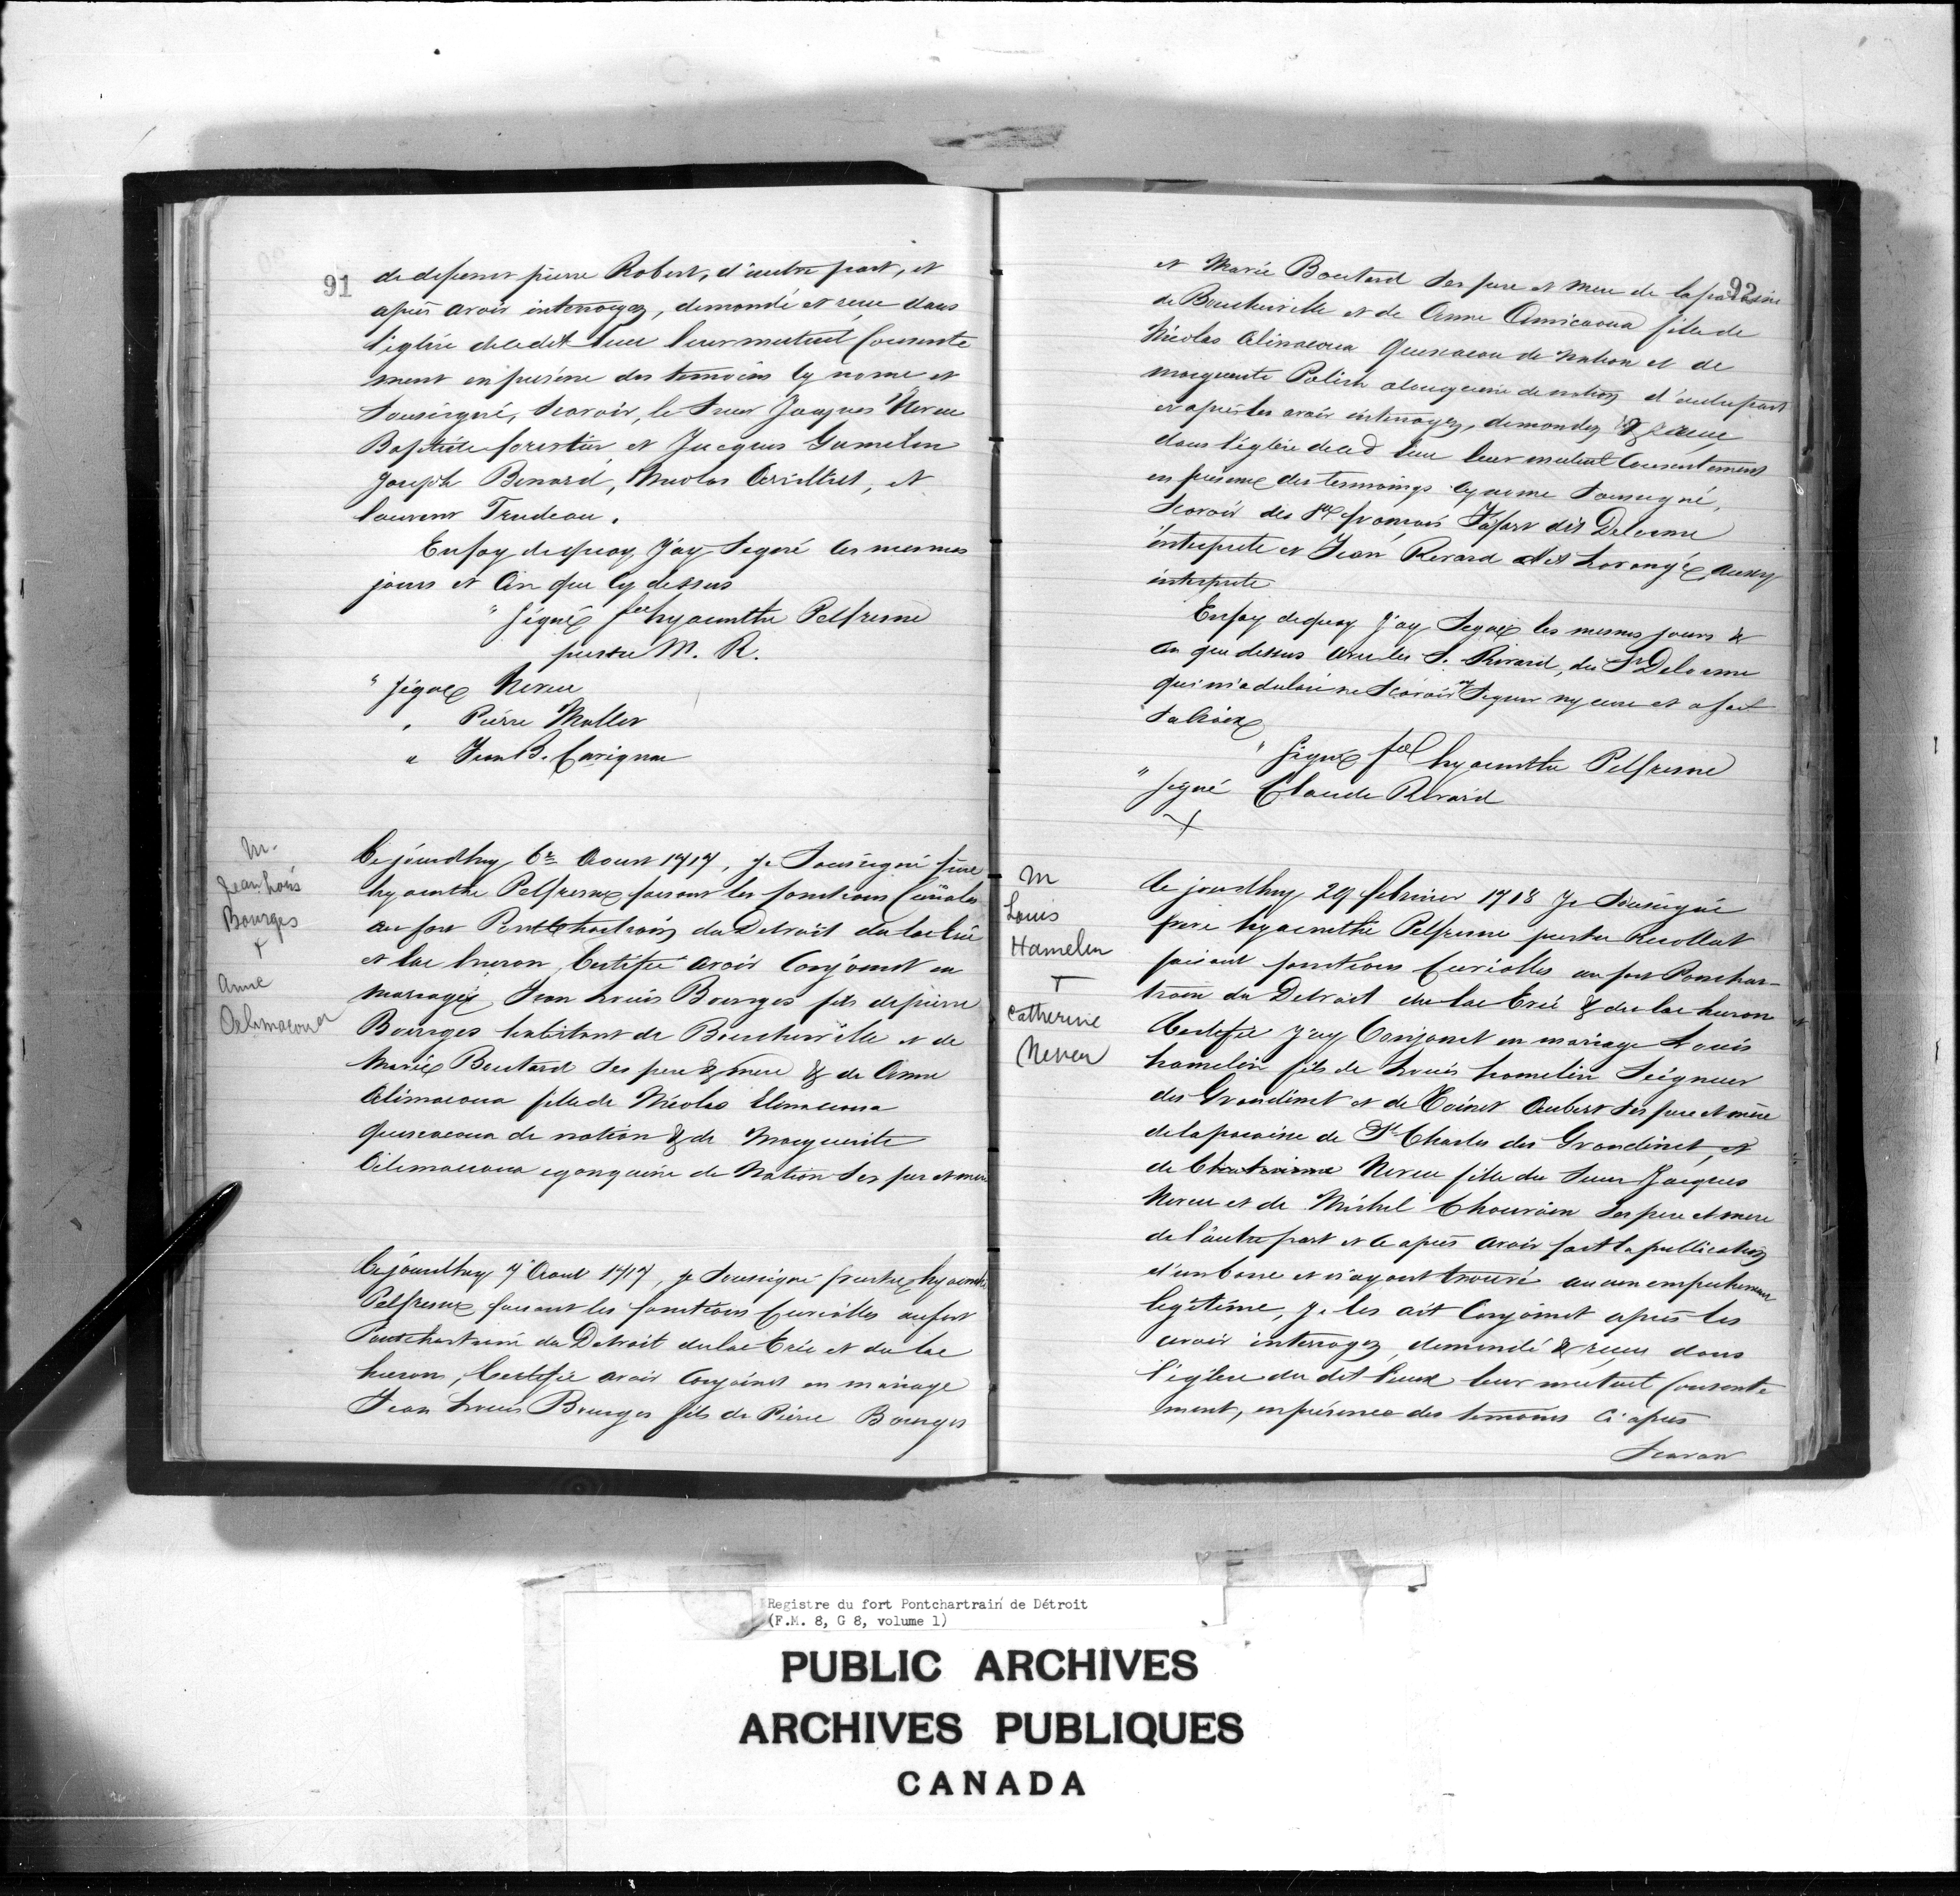 91
de defunct pierre Robert, d'autre part, et
apres avoir interrogez, demandé et reçu dans
l'eglise dudit lieu leur mutuel consente
ment en presence des temoins cy nome et
sousigné, scavoir, le Sieur Jacques Neveu
Baptiste forestier et Jacques Gamelin
Joseph Benard, Nicolas et
laurent Trudeau.
En foy de quoy J'ay Segné les mesmes
jours et an que cy dessus
" Signé fre hyacinthe Pelfresne
prestre M. R.
" Signé Neveu
" Pierre Maller
" Jean B. Carignan
M.
Jean Louis
Bourges
+
Anne
Oelimacoua
Ce jourdhuy 6e Aoust 1717, je Sousigné frere
hyacinthe Pelfresne faisant les fonctions Curiales
au fort Pontchartrain du Detroit du lac Erié
et lac huron, Certifie avoir Conjoinct en
mariage Jean Louis Bourges fils de pierre
Bourges habitant de Boucherville et de
Marie Boutard ses pere & mere & de Anne
Alimacoua fille de Nicolas Elimacoua
quiscacoua de nation & de Marguerite
Oilimacoua egonquine de Nation ses per et mere
Ce jourdhuy 7 Aout 1717, je sousigné frestre hyacinthe
Pelfresne faisant les fonctions Curiolles au fort
Pontchartrain du Detroit du lac Erie et du lac
huron, Certifie avoir Conjoinct en mariage
Jean Louis Bourges fils de Pierre Bourges
92
et Marie Boutard ses pere et mere de la paroisse
de Boucherville et de Anne Amicaoua fille de
Nicolas Alimacoua quiscacou de nation et de
marguerite Polish alougquine de nation d'autre part
et apres les avoir interrogez, demandez & receu
dans l'eglise de ce d lieu leur mutuel Consentement
en presence des termoings cy nome sousigné,
Scavoir des Srs francois Fafart dit Delorme
interprete et Jean Rivard dit Lorangé, aussy
interprete
En foy de quoy J'ay Segné les mesmes jours &
an que dessus avec les S. Rivard, du Sr Delorme
qui m'a declaré ne Scavoir Segner ny ecrire et a fait
sa croix
" Signé frel hyacinthe Pelfresne
" Segné Claude Rivard
+
M
Louis
Hamelin
+
Catherine
Neveu
Ce jourdhuy 29 febvrier 1718 Je Sousigné
frere hyacinthe Pelfresne prestre Recollect
faisant fonctions Curiolles au fort Ponchar-
train du Detroit du lac Erié & du lac huron
Certifie J'ay Conjoinct en mariage Louis
hamelin fils de Louis hamelin Seigneur
des Grondinet et de Toinet Aubert ses pere et mère
de la paroisse de St Charles des Grondinet, et
de Chatrinne Neveu fille du Sieur Jacques
Neveu et de Michel Chouvain ses pere et mere
de l'autre part et ce apres avoir fait la publication
d'un banc et n'ayant trouvé aucun empechement
legitime, je les ait Conjoinct apres les
avoir interrogez demandé & recu dans
l'eglise du dit lieux leur mutuel Consente
ment, en présence des temoins ci apres
Scavoir
Registre du fort Pontchartrain de Détroit
(F.M. 8, G 8, volume 1)
PUBLIC ARCHIVES
ARCHIVES PUBLIQUES
CANADA